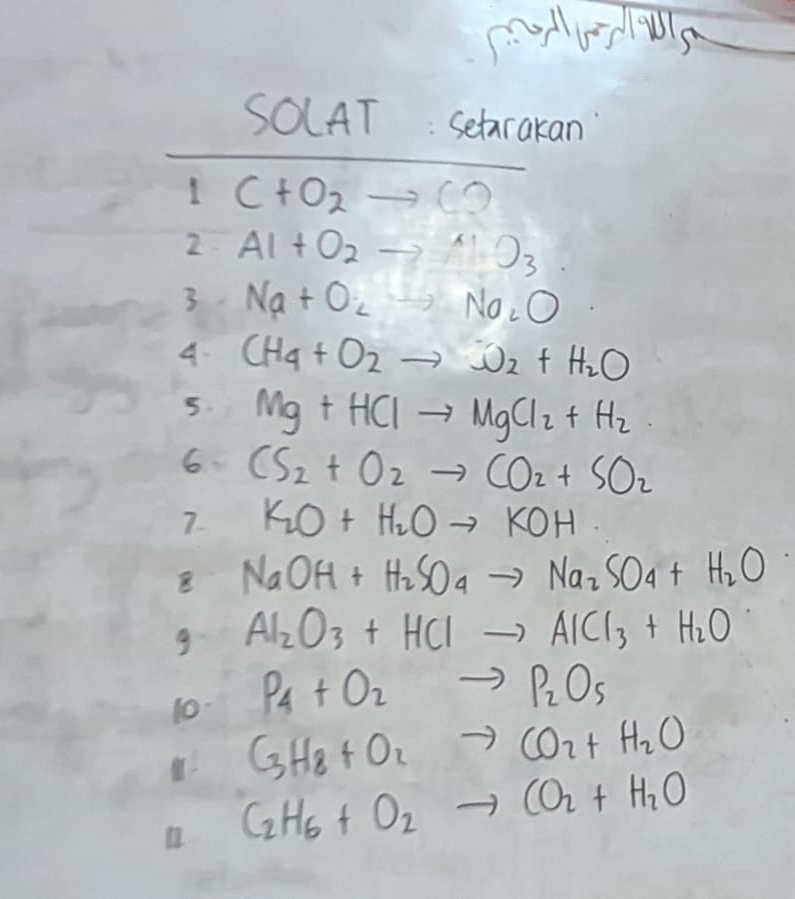 بسم الله الرحمن الرحيم
SOLAT : Setarakan
1 C + O₂ → CO
2. Al + O₂ → Al O₃.
3. Na + O₂ → Na₂O.
4. CH₄ + O₂ → CO₂ + H₂O
5. Mg + HCl → MgCl₂ + H₂.
6. CS₂ + O₂ → CO₂ + SO₂
7. K₂O + H₂O → KOH.
8 NaOH + H₂SO₄ → Na₂SO₄ + H₂O
9. Al₂O₃ + HCl → AlCl₃ + H₂O
10. P₄ + O₂ → P₂O₅
11. C₃H₈ + O₂ → CO₂ + H₂O
12 C₂H₆ + O₂ → CO₂ + H₂O